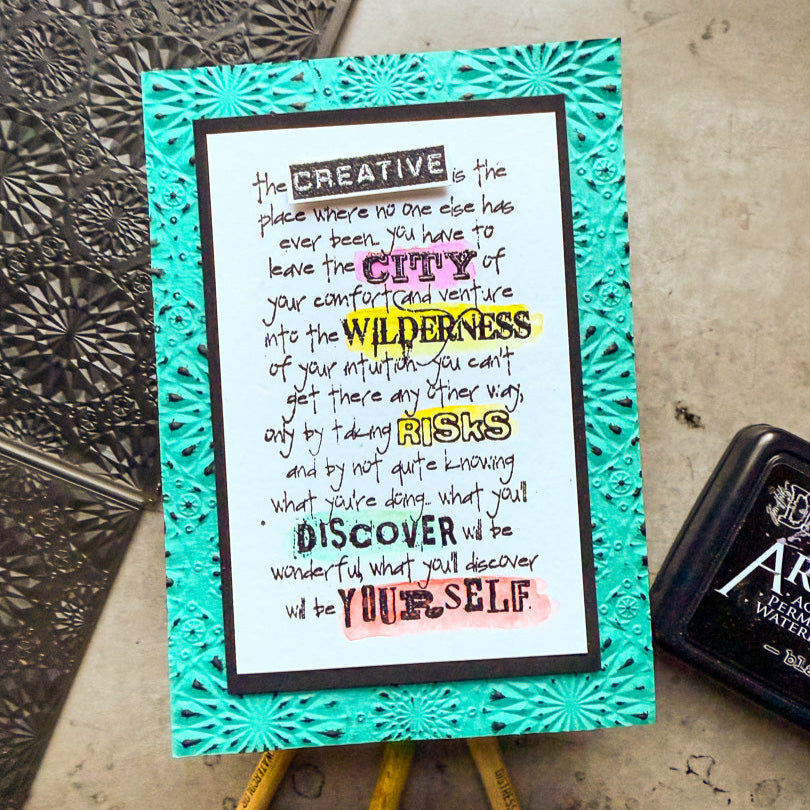 the CREATIVE is the
place where no one else has
ever been. you have to
leave the CITY of
your comfort and venture
into the WILDERNESS
of your intuition. you can't
get there any other way,
only by taking RISKS
and by not quite knowing
what you're doing. what you'll
DISCOVER will be
wonderful, what you'll discover
will be YOURSELF.
AR
PERM
WATER
bla
DISTRESS